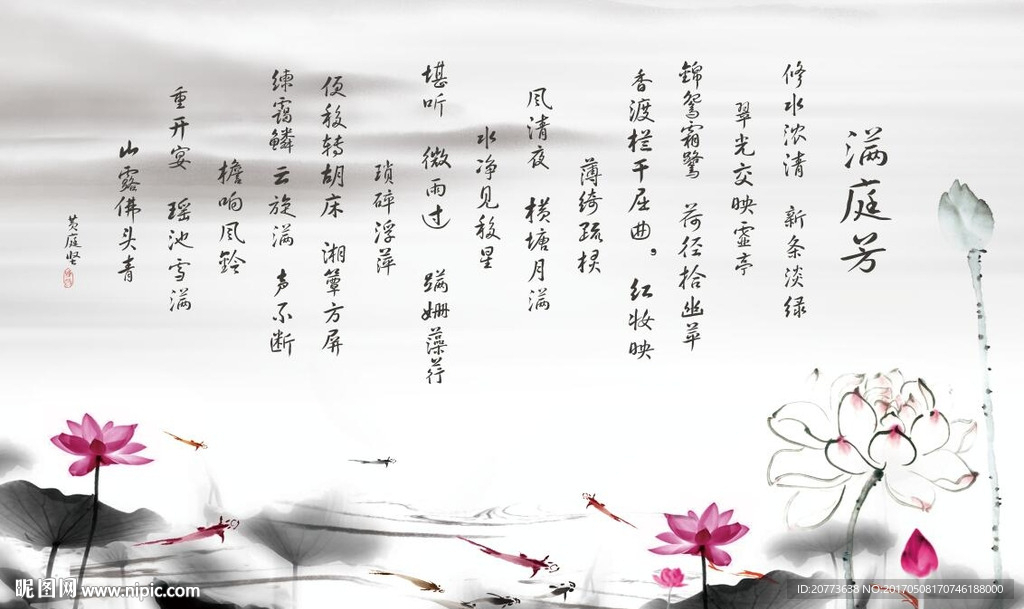 满庭芳
修水浓清 新条淡绿
翠光交映虚亭
錦鸳霜鹭 荷径拾幽苹
香渡栏干屈曲，红妆映
薄绮疏棂
风清夜 横塘月满
水净见移星
堪听 微雨过 蹒姗藻荇
琐碎浮萍
便移转胡床 湘簟方屏
练霭鳞云旋满 声不断
檐响风铃
重开宴 瑶池雪满
山露佛头青
黄庭坚
昵图网 www.nipic.com
ID:20773638 NO:20170508170746188000